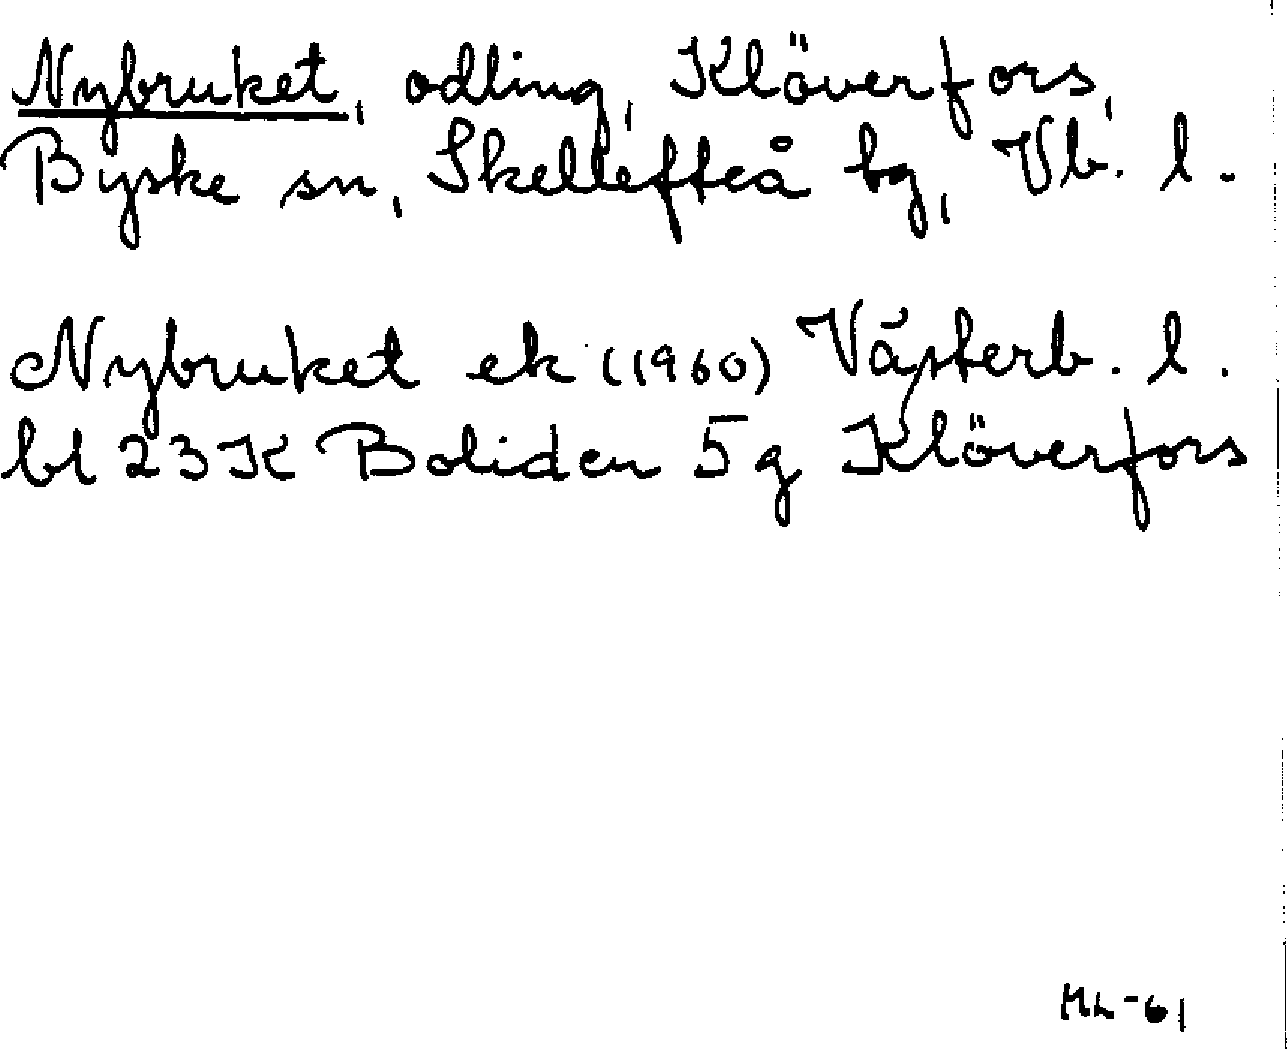 Nybruket, odling, Klöverfors,
Byske sn, Skellefteå bg, Vb. l.
Nybruket ek (1960) Västerb. l.
bl 23K Boliden 5g Klöverfors
ML-61